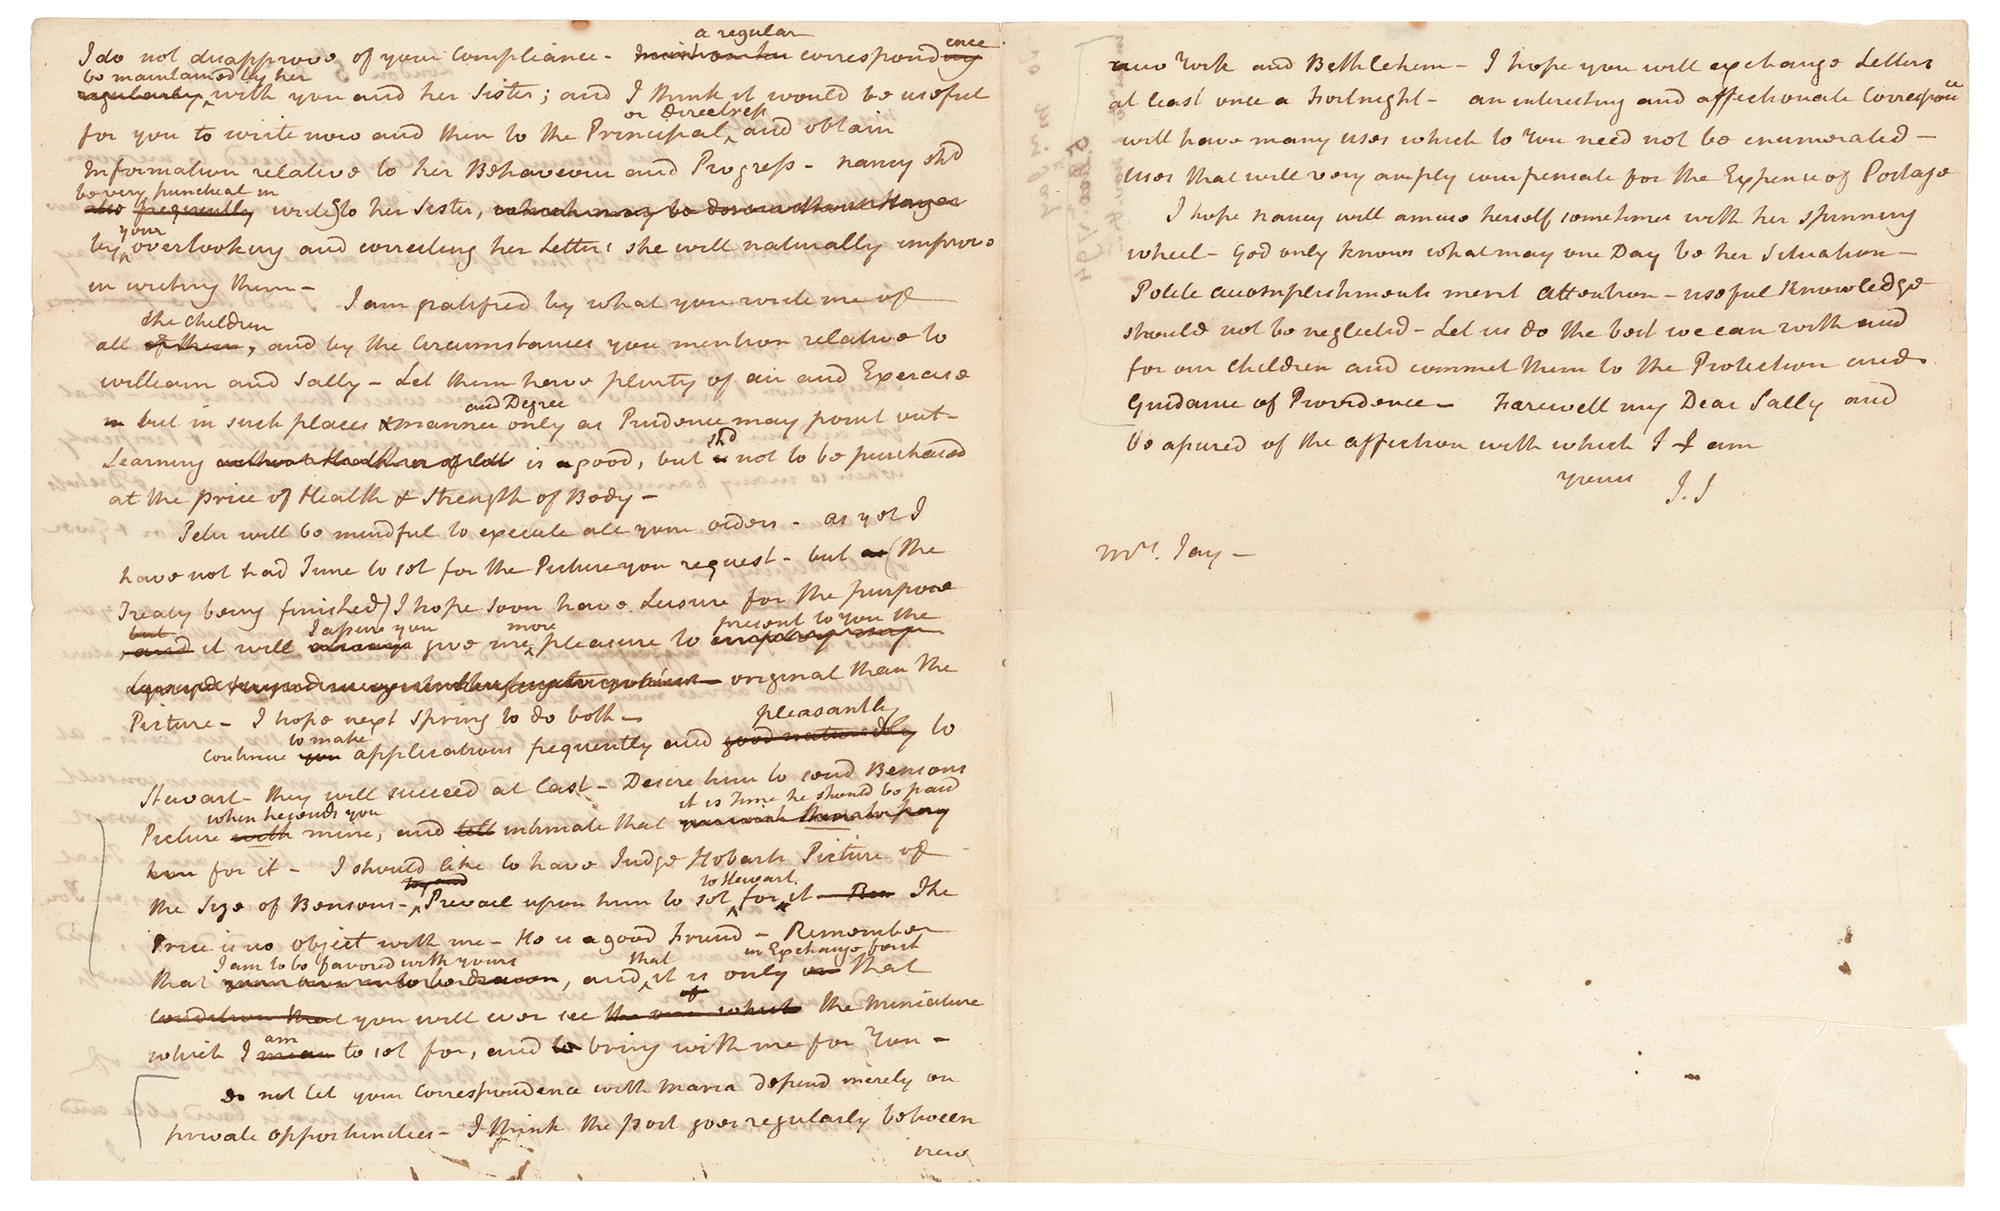 a regular ence
I do not disapprove of your Compliance - correspond
be maintained by her
regularly with you and her Sister; and I think it would be useful
or Directress
for you to write now and then to the Principal, and obtain
Information relative to her Behaveour and Progress - Nancy shd
be very punctual in
also frequently write to her Sister, which may be done
your
by overlooking and correcting her Letters she will naturally improve
in writing them -
I am gratified by what you write me of
the children
all of them, and by the Circumstances you mention relative to
william and Sally - Let them have plenty of air and Exercise
and Degree
but in such places & manner only as Prudence may point out -
shd
Learning without Health is a good, but is not to be purchased
at the price of Health & Strength of Body -
Peter will be mindful to execute all your orders - as yet I
have not had Time to set for the Picture you request - but as (the
Treaty being finished) I hope soon have Leisure for the purpose
but I assure you more present to you the
and it will always give me pleasure to
original than the
Picture - I hope next Spring to do both -
to make pleasantly
Continue your applications frequently and good naturedly to
Stewart - they will succeed at last - Desire him to send Bensons
when he sends you it is Time he should be paid
Picture with mine, and tell intimate that you wish to pay
him for it - I should like to have Judge Hobarts Picture of
try and to Stewart
the Size of Bensons - Prevail upon him to set for it - The
Price is no object with me - He is a good Friend - Remember
I am to be favored with yours that in Exchange for it
that, and it is only on that
of
condition that you will ever see the one which the Miniature
am
which I mean to set for, and to bring with me for You -
do not let your Correspondence with Maria depend merely on
private opportunities - I think the post goes regularly between
new
new York and Bethlehem - I hope you will exchange Letters
at least once a Fortnight - an interesting and affectionate Corresponce
will have many uses which to You need not be enumerated -
uses that will very amply compensate for the Expence of Postage
I hope Nancy will amuse herself sometimes with her spinning
wheel - God only knows what may one Day be her Situation -
Polite accomplishments merit attention - useful Knowledge
should not be neglected - Let us do the best we can with and
for our children and commit them to the Protection and
Guidance of Providence - Farewell my Dear Sally and
be assured of the affection with which I I am
yours
J.J
Mrs. Jay -